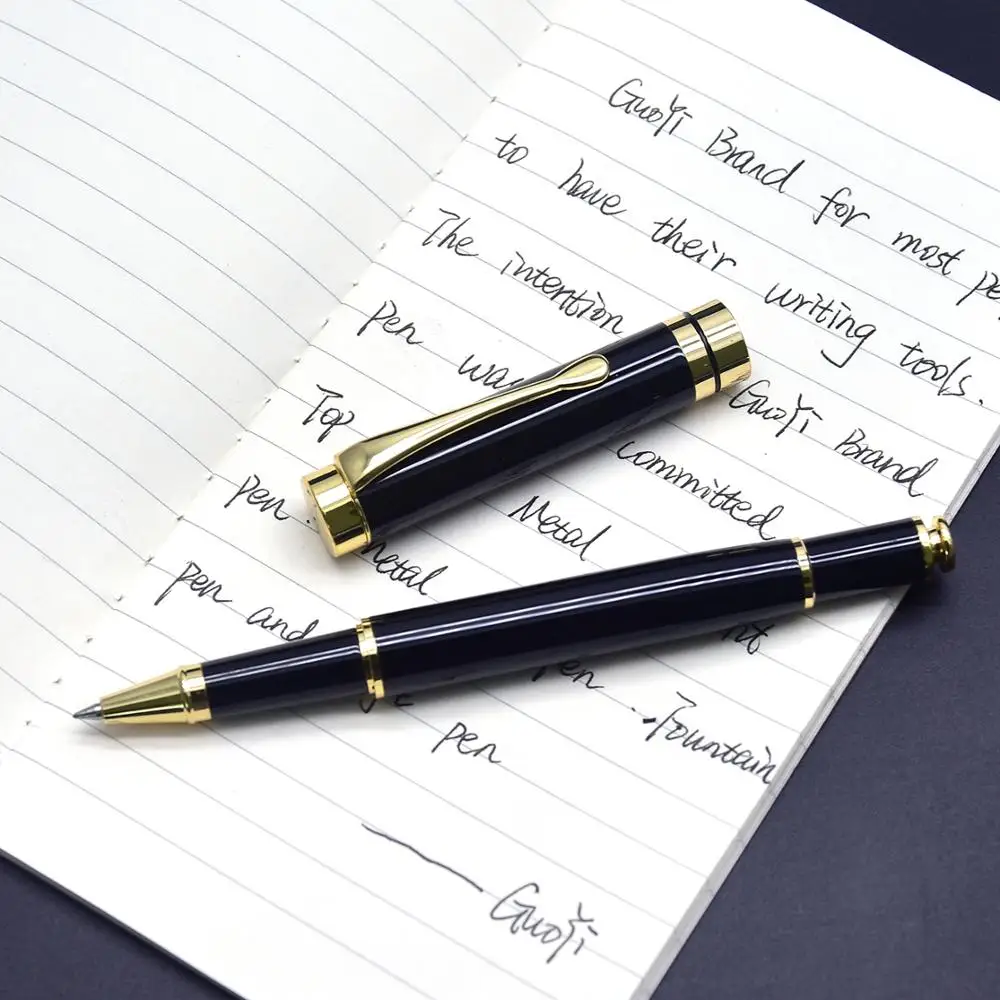 GuoYi Brand for most pe
to have their writing tools.
The intention GuoYi Brand
pen wa committed
Top Metal
pen. metal
pen and pen ... Fountain
pen
GuoYi